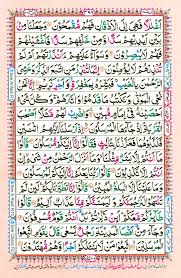 اَغْلٰلًا فَهِيَ اِلَى الْاَذْقَانِ فَهُمْ مُّقْمَحُوْنَ وَجَعَلْنَا مِنْۢ
بَيْنِ اَيْدِيْهِمْ سَدًّا وَّمِنْ خَلْفِهِمْ سَدًّا فَاَغْشَيْنٰهُمْ
فَهُمْ لَا يُبْصِرُوْنَ وَسَوَآءٌ عَلَيْهِمْ ءَاَنْذَرْتَهُمْ اَمْ لَمْ
تُنْذِرْهُمْ لَا يُؤْمِنُوْنَ اِنَّمَا تُنْذِرُ مَنِ اتَّبَعَ الذِّكْرَ وَخَشِيَ
الرَّحْمٰنَ بِالْغَيْبِ فَبَشِّرْهُ بِمَغْفِرَةٍ وَّاَجْرٍ كَرِيْمٍ اِنَّا نَحْنُ
نُحْيِ الْمَوْتٰى وَنَكْتُبُ مَا قَدَّمُوْا وَاٰثَارَهُمْ وَكُلَّ شَيْءٍ
اَحْصَيْنٰهُ فِيْٓ اِمَامٍ مُّبِيْنٍ وَاضْرِبْ لَهُمْ مَّثَلًا اَصْحٰبَ
الْقَرْيَةِ اِذْ جَآءَهَا الْمُرْسَلُوْنَ اِذْ اَرْسَلْنَآ اِلَيْهِمُ اثْنَيْنِ
فَكَذَّبُوْهُمَا فَعَزَّزْنَا بِثَالِثٍ فَقَالُوْٓا اِنَّآ اِلَيْكُمْ مُّرْسَلُوْنَ قَالُوْا
مَآ اَنْتُمْ اِلَّا بَشَرٌ مِّثْلُنَا وَمَآ اَنْزَلَ الرَّحْمٰنُ مِنْ شَيْءٍ اِنْ
اَنْتُمْ اِلَّا تَكْذِبُوْنَ قَالُوْا رَبُّنَا يَعْلَمُ اِنَّآ اِلَيْكُمْ لَمُرْسَلُوْنَ
وَمَا عَلَيْنَآ اِلَّا الْبَلٰغُ الْمُبِيْنُ قَالُوْٓا اِنَّا تَطَيَّرْنَا بِكُمْ لَئِنْ
لَّمْ تَنْتَهُوْا لَنَرْجُمَنَّكُمْ وَلَيَمَسَّنَّكُمْ مِّنَّا عَذَابٌ اَلِيْمٌ قَالُوْا
طَآئِرُكُمْ مَّعَكُمْ اَئِنْ ذُكِّرْتُمْ بَلْ اَنْتُمْ قَوْمٌ مُّسْرِفُوْنَ
وَجَآءَ مِنْ اَقْصَا الْمَدِيْنَةِ رَجُلٌ يَّسْعٰى قَالَ يٰقَوْمِ اتَّبِعُوا
الْمُرْسَلِيْنَ اتَّبِعُوْا مَنْ لَّا يَسْئَلُكُمْ اَجْرًا وَّهُمْ مُّهْتَدُوْنَ